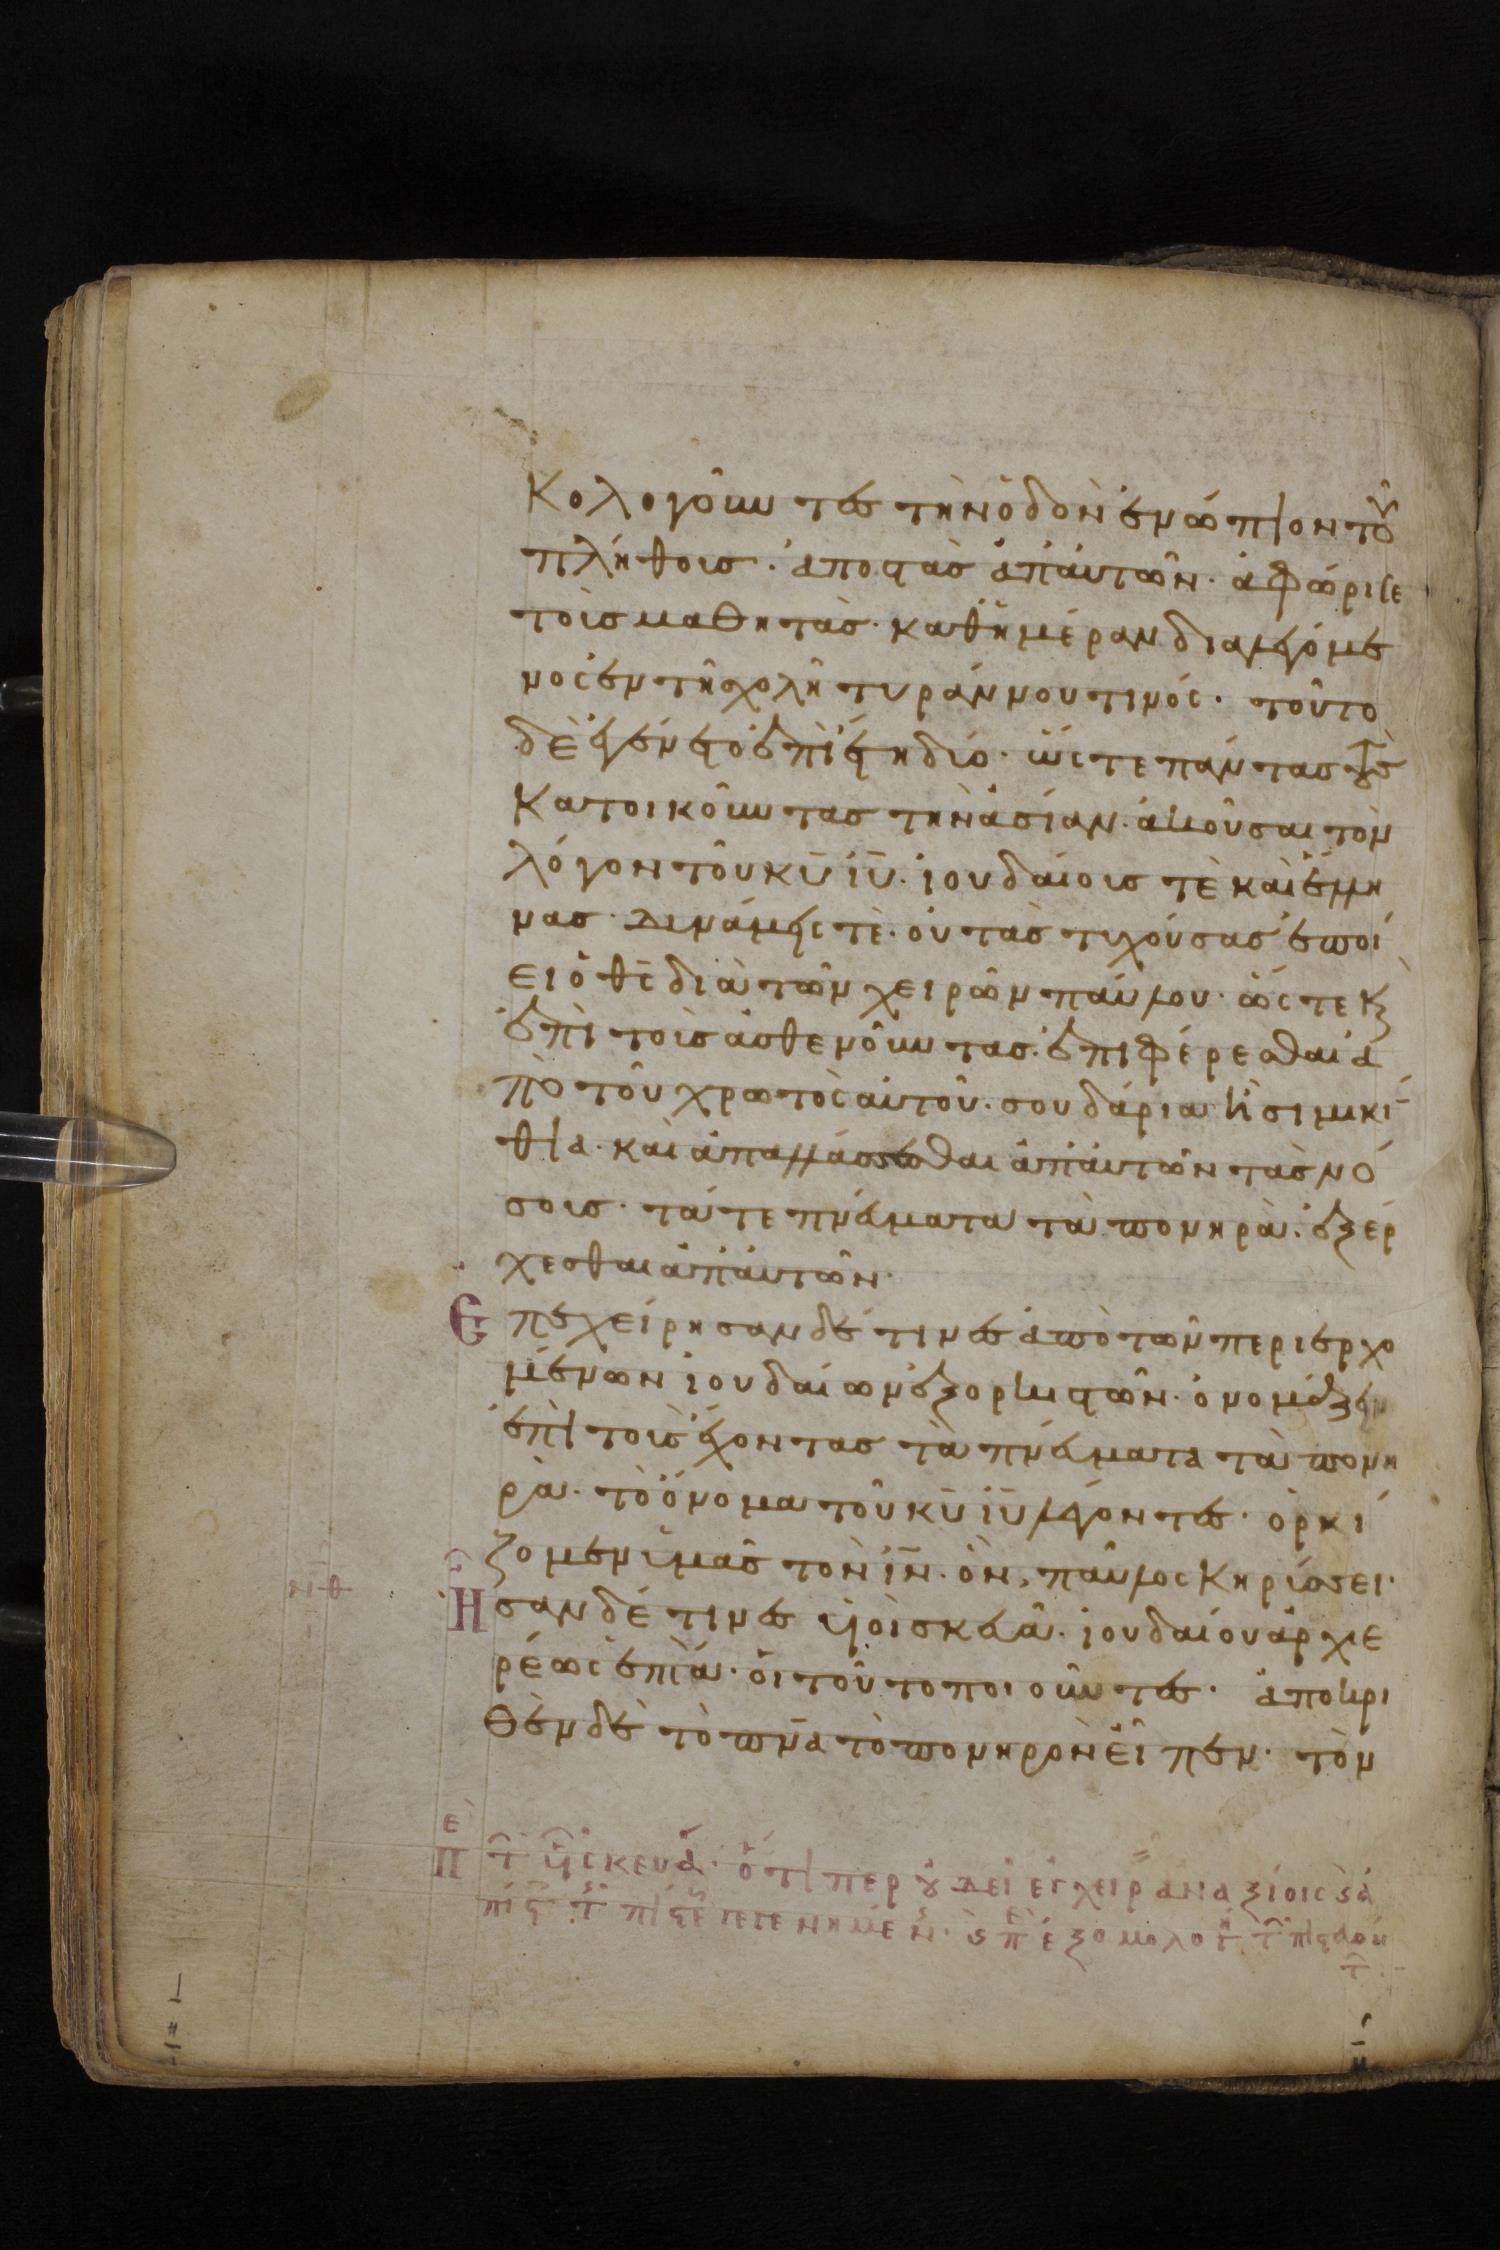 κολογοῦντες τὴν ὁδὸν ἐνώπιον τοῦ
πλήθους· ἀποστὰς ἀπ' αὐτῶν· ἀφώρισε
τοὺς μαθητάς· καθ' ἡμέραν διαλεγόμε
νος ἐν τῆ σχολῆ τυράννου τινός· τοῦτο
δὲ ἐγένετο ἐπὶ ἔτη δύο· ὥστε πάντας τοὺς
κατοικοῦντας τὴν ἀσίαν· ἀκοῦσαι τὸν
λόγον τοῦ κ̅υ̅ ι̅υ̅· ἰουδαίους τὲ καὶ ἕλλη
νας· δυνάμεις τὲ· οὐ τὰς τυχούσας ἐποί
ει ὁ θ̅ς̅ διὰ τῶν χειρῶν παύλου· ὥστε κ̀
ἐπὶ τοὺς ἀσθενοῦντας· ἐπιφέρεσθαι ἀ
πὸ τοῦ χρωτὸς αὐτοῦ· σουδάρια ἢ σιμικί
θια· καὶ ἀπαλλάσσεσθαι ἀπ' αὐτῶν τὰς νό
σους· τά τε πν̅ευματα τὰ πονηρὰ· ἐξέρ
χεσθαι ἀπ' αὐτῶν·
Ἐπεχείρησαν δέ τινες ἀπὸ τῶν περιερχο
μένων ἰουδαίων ἐξορκιστῶν· ὀνομάζειν
ἐπὶ τοὺς ἔχοντας τὰ πνεύματα τὰ πονη
ρὰ· τὸ ὄνομα τοῦ κ̅υ̅ ι̅υ̅ λέγοντες· ὁρκί
ζομεν ὑμᾶς τὸν ι̅ν̅· ὃν παῦλος κηρύσσει·
νθ Ἦσαν δέ τινες υἱοὶ σκευᾶ· ἰουδαίου ἀρχιε
ρέως ἑπτὰ· οἱ τοῦτο ποιοῦντες· ἀποκρι
θὲν δὲ τὸ πν̅α τὸ πονηρὸν εἶπεν· τὸν